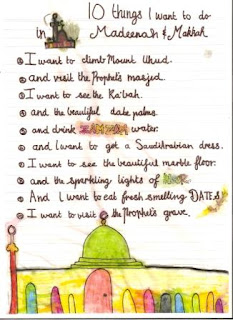 10 things I want to do
in Madeenah & Makkah
I want to climb Mount Uhud.
and visit the Prophet's masjed.
I want to see the Ka'bah.
and the beautiful date palms.
and drink ZAMZAM water.
and I want to get a Saudi Arabian dress.
I want to see the beautiful marble floor.
and the sparkling lights of
And I want to eat fresh smelling DATES
I want to visit the Prophet's grave.